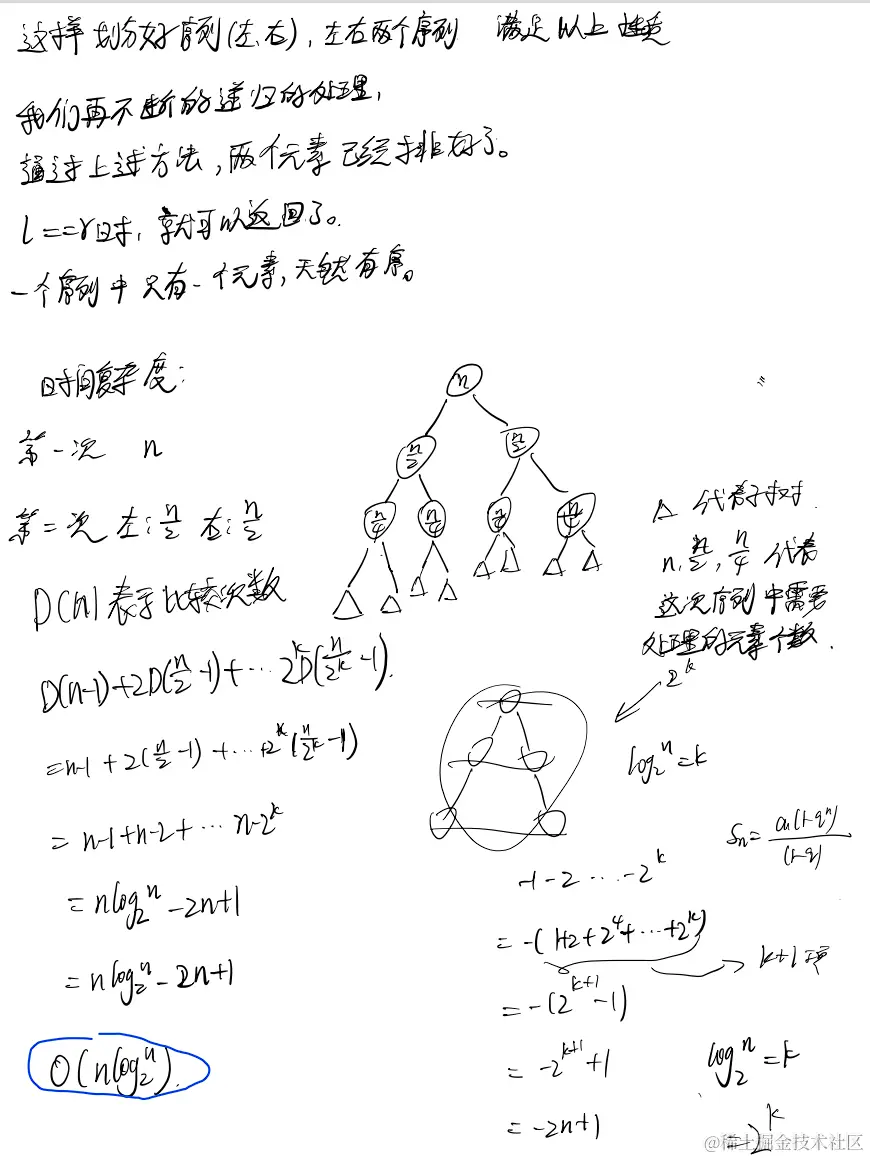 这样划分好序列(左、右),左右两个序列 满足以上性质
我们再不断的递归的处理,
通过上述方法,两个元素已经排好了。
l==r时,就可以返回了。
一个序列中只有一个元素,天然有序。
时间复杂度:
第一次 n
第二次 左:n/2 右:n/2
D(n)表示比较次数
D(n-1)+2D(n/2-1)+…2^kD(n/2^k-1).
=n-1+2(n/2-1)+…+2^k(n/2^k-1)
=n-1+n-2+…n-2^k
=nlog₂^n-2n+1
=nlog₂^n-2n+1
O(nlog₂^n).
n
n/2 n/2
n/4 n/4 n/4 n/4
△ △ △ △ △ △ △ △
△代表子树.
n,n/2,n/4代表
这次序列中需要
处理的元素个数.
2^k
log₂^n=k
Sn=a₁(1-q^n)/(1-q)
-1-2…-2^k
=-(1+2+2^4+…+2^k)
k+1项
=-(2^{k+1}-1)
=-2^{k+1}+1
log₂^n=k
=-2n+1
=2^k
@稀土掘金技术社区